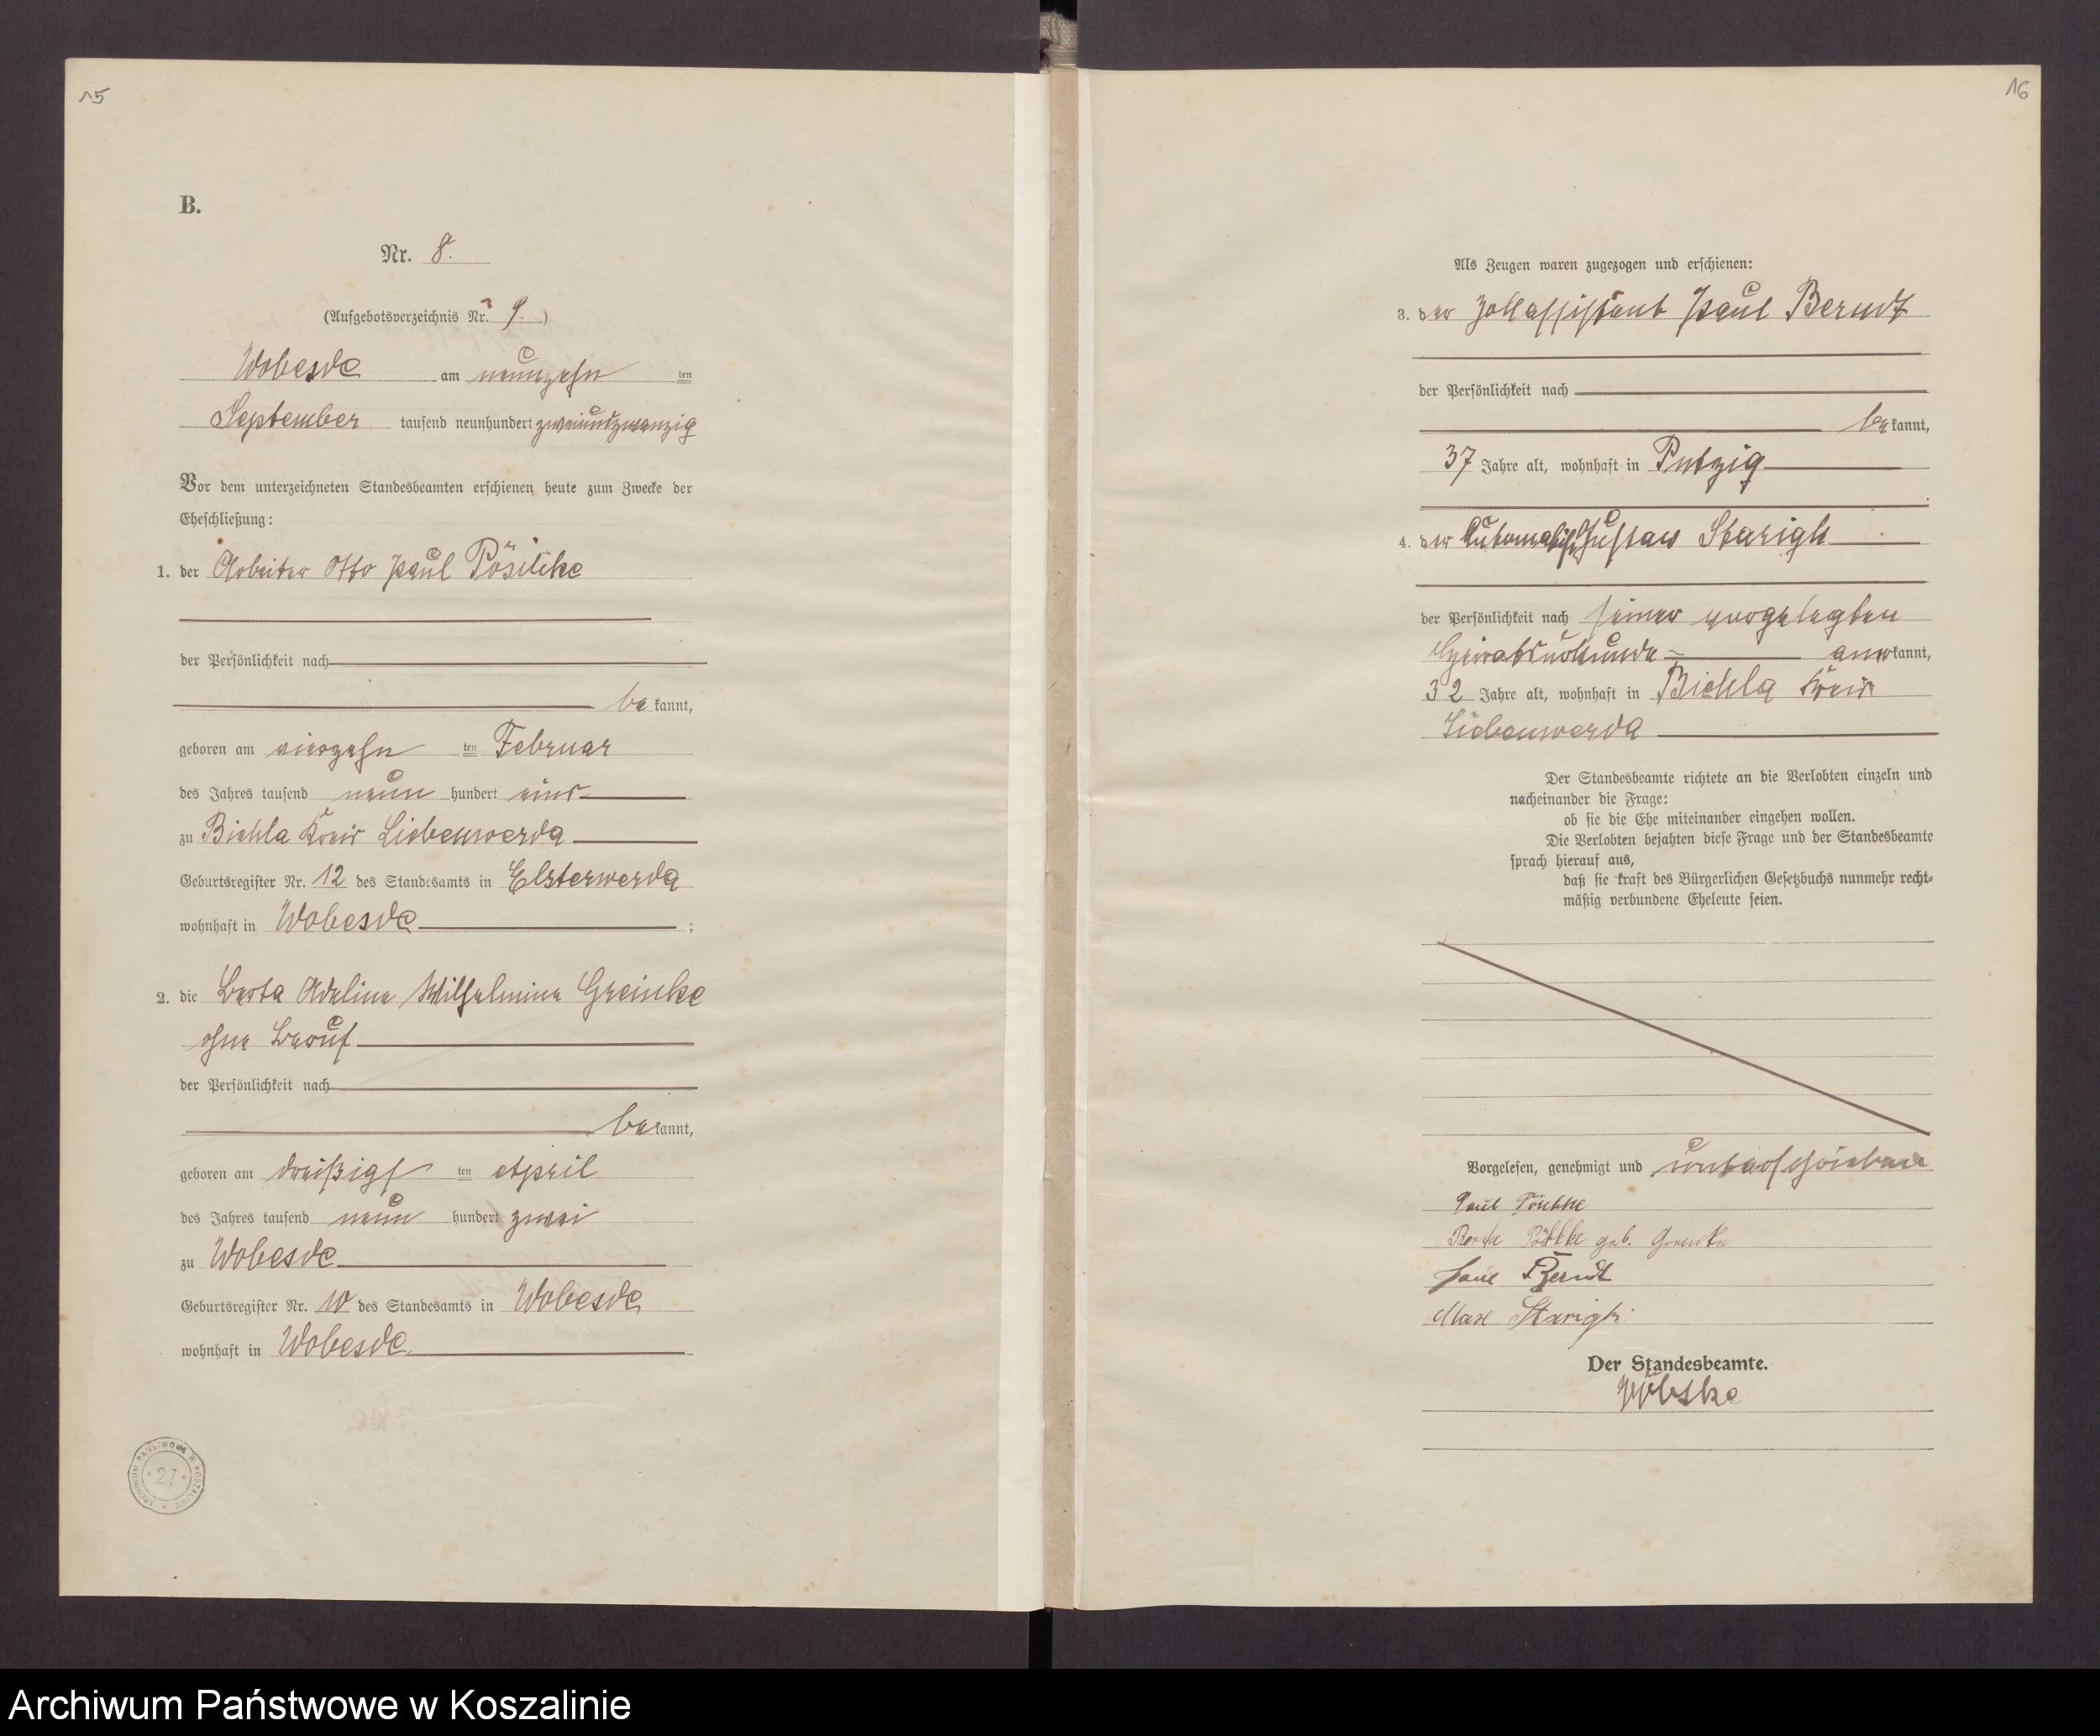 15
B.
Nr. 8.
(Aufgebotsverzeichnis Nr. 9.)
Wobesde am neunzehn ten
September tausend neunhundert zweiundzwanzig
Vor dem unterzeichneten Standesbeamten erschienen heute zum Zwecke der
Eheschließung:
1. der Arbeiter Otto Paul
der Persönlichkeit nach
be kannt,
geboren am vierzehn ten Februar
des Jahres tausend neun hundert eins
zu Biehla Kreis Liebenwerda
Geburtsregister Nr. 12 des Standesamts in Elsterwerda
wohnhaft in Wobesde ;
2. die Berta Adeline Wilhelmine Greinke
ohne Beruf
der Persönlichkeit nach
be kannt,
geboren am dreißigs ten April
des Jahres tausend neun hundert zwei
zu Wobesde
Geburtsregister Nr. 10 des Standesamts in Wobesde
wohnhaft in Wobesde
ARCHIWUM PAŃSTWOWE W KOSZALINIE
27
16
Als Zeugen waren zugezogen und erschienen:
3. der Zollassistent Paul Berndt
der Persönlichkeit nach
be kannt,
37 Jahre alt, wohnhaft in Putzig
4. der Gustav Starigk
der Persönlichkeit nach seiner vorgelegten
Heiratsurkunde aner kannt,
32 Jahre alt, wohnhaft in Biehla Kreis
Liebenwerda
Der Standesbeamte richtete an die Verlobten einzeln und
nacheinander die Frage:
ob sie die Ehe miteinander eingehen wollen.
Die Verlobten bejahten diese Frage und der Standesbeamte
sprach hierauf aus,
daß sie kraft des Bürgerlichen Gesetzbuchs nunmehr recht-
mäßig verbundene Eheleute seien.
Vorgelesen, genehmigt und unterschrieben
Paul
Berta geb. Greinke
Paul Berndt
Max Starigk
Der Standesbeamte.
Archiwum Państwowe w Koszalinie